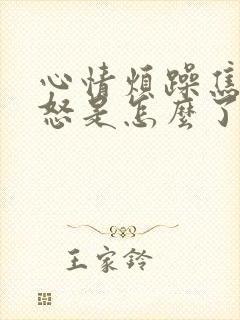 心情煩躁焦
怒是怎麼了
王家鈴